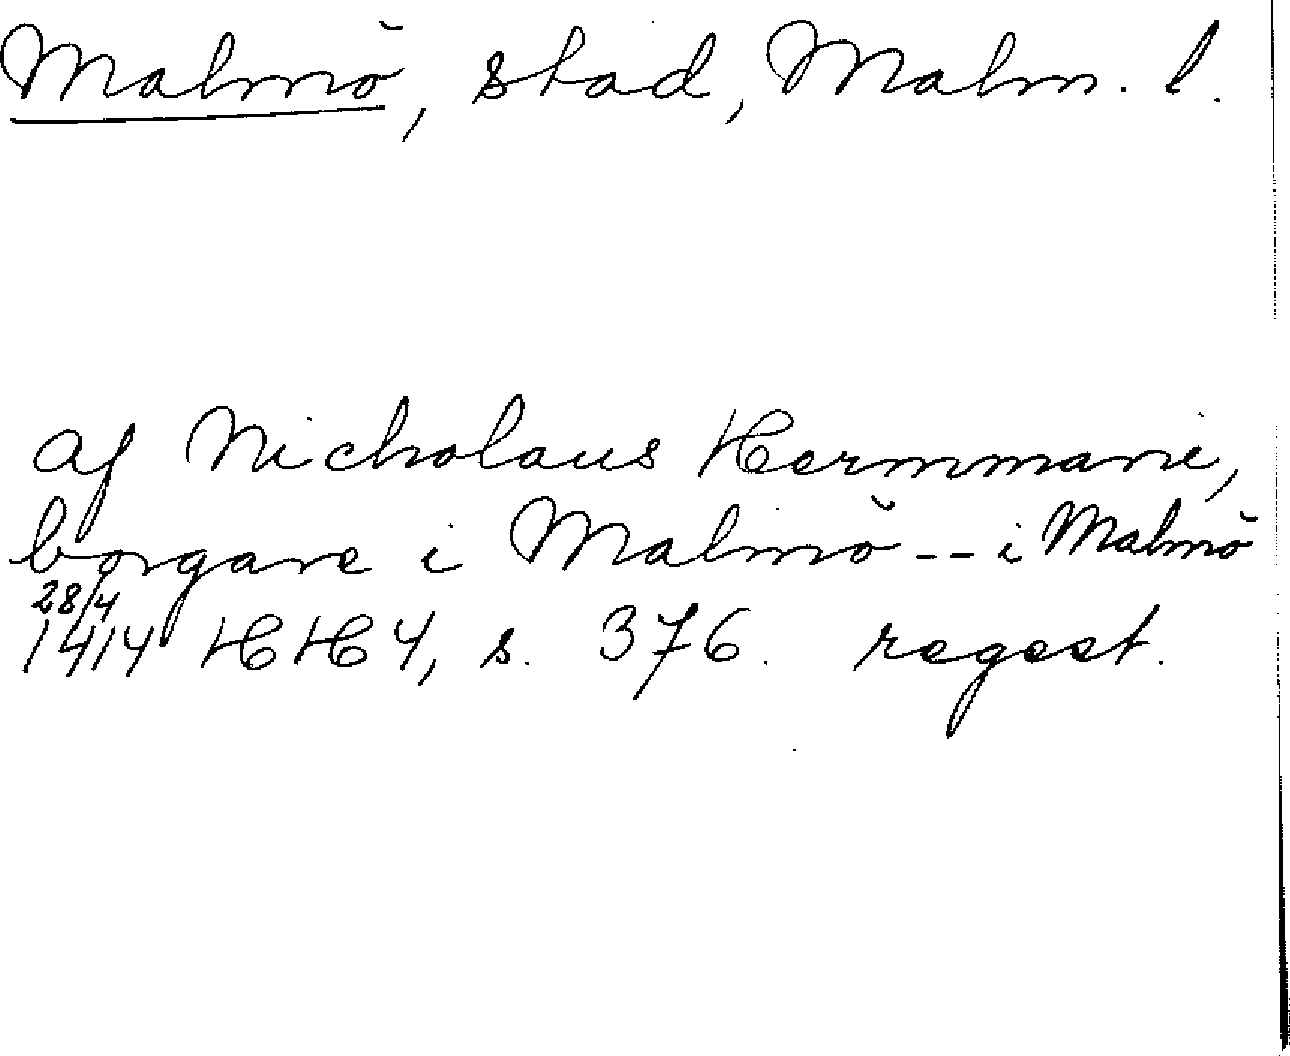 Malmö, stad, Malm. l.
af Nicholaus Hermmani,
borgare i Malmö -- i Malmö
28/4
1414 HH 4, s. 376. regest.